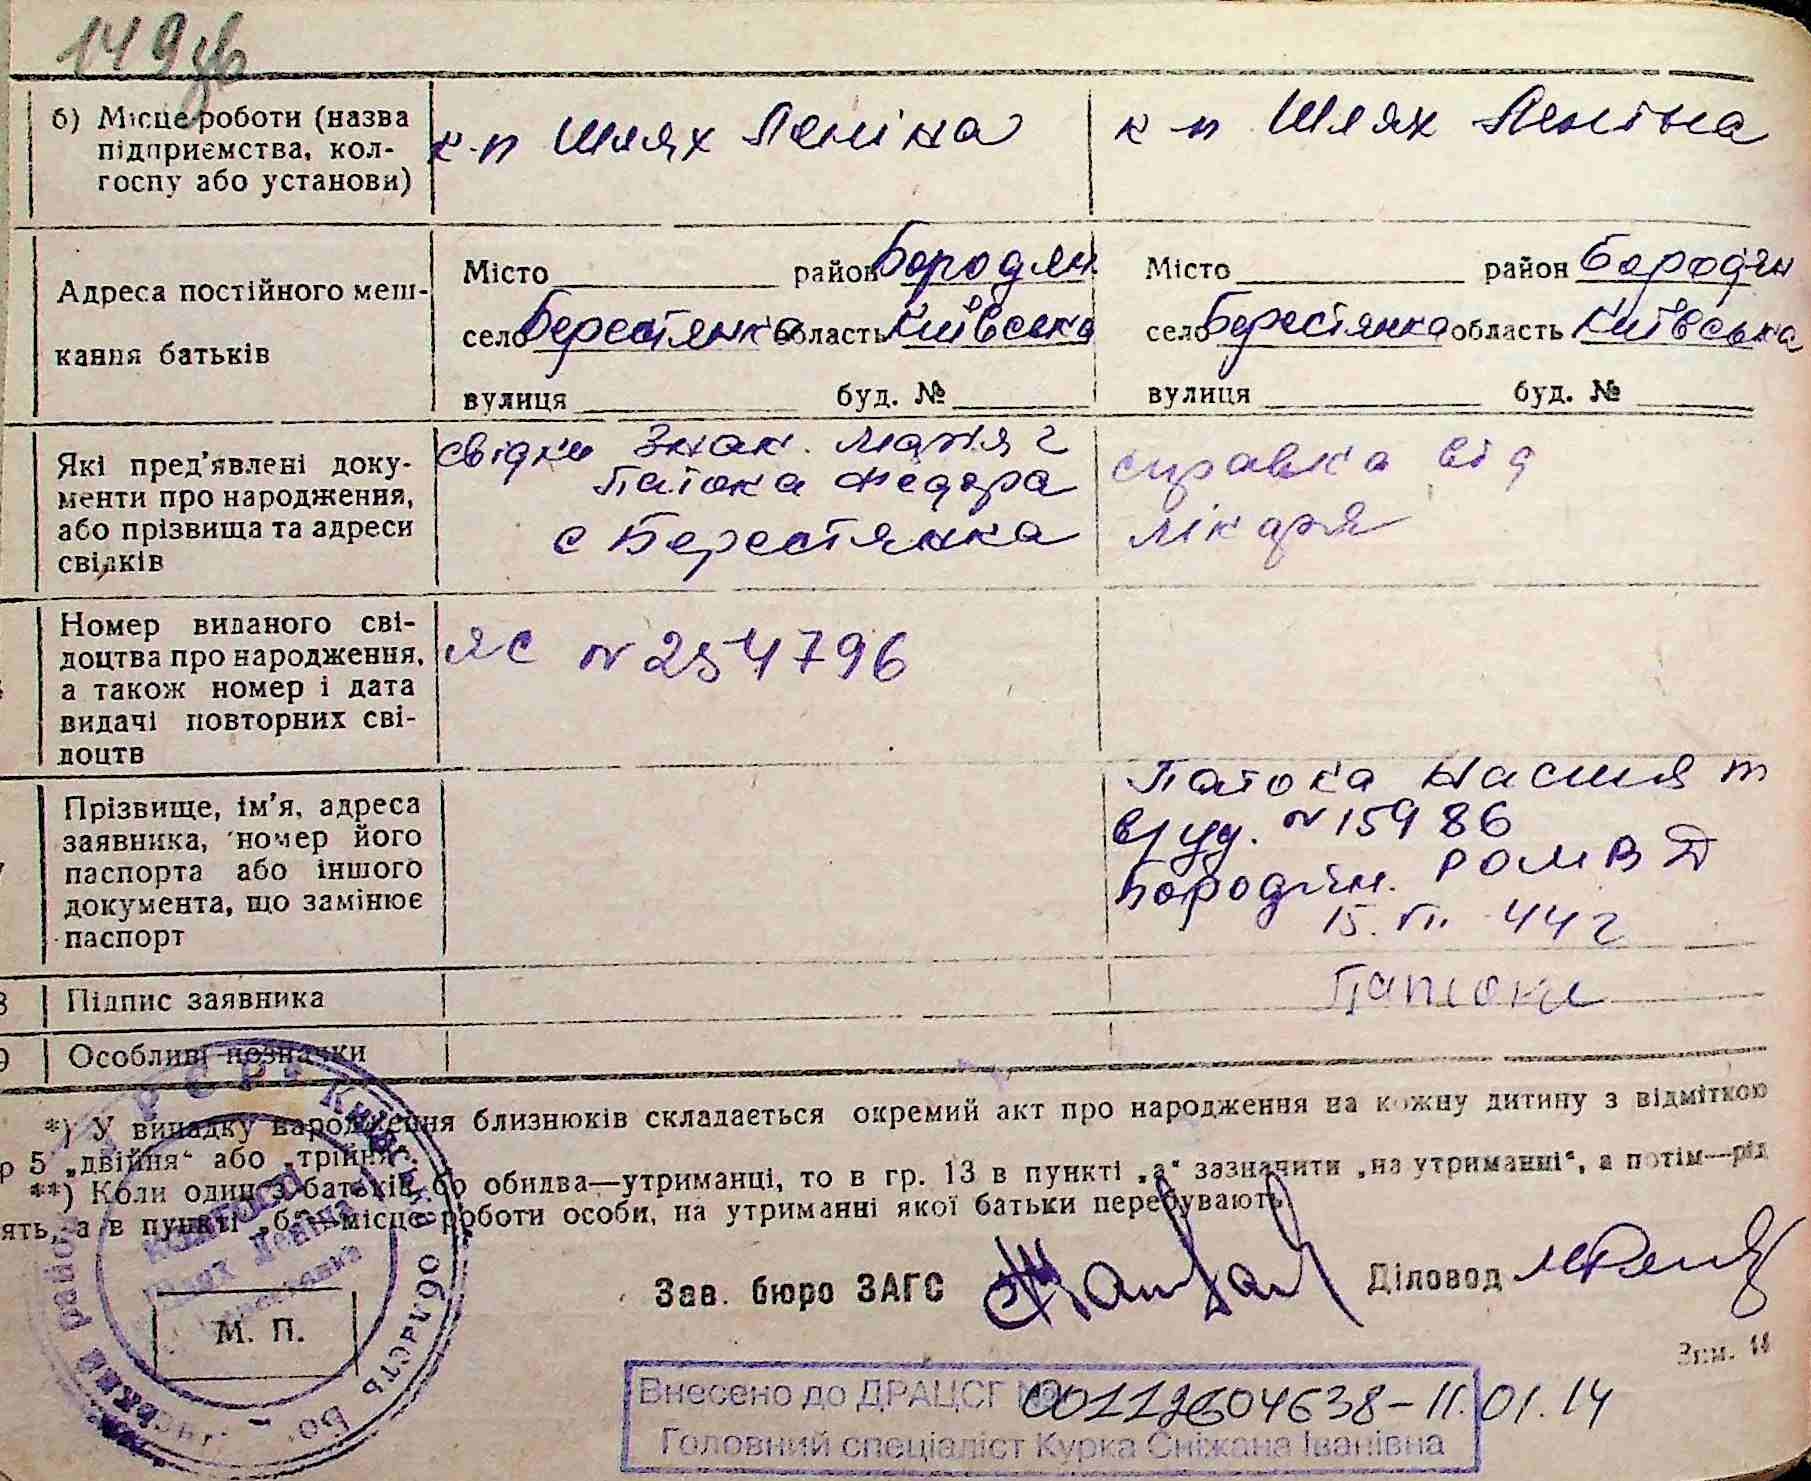 149 зв
б) Місце роботи (назва підприємства, кол-госпу або установи)
к-п Шлях Леніна
к-п Шлях Леніна
Адреса постійного меш-
кання батьків
Місто район Бородян
село Берестянка область Київська
вулиця буд. №
Місто район Бородян
село Берестянка область Київська
вулиця буд. №
Які пред'явлені доку-
менти про народження,
або прізвища та адреси
свідків
свідки Знак. Марія г
Патока Федора
с Берестянка
справка від
лікаря
Номер виданого сві-
доцтва про народження,
а також номер і дата
видачі повторних сві-
доцтв
ЯС № 254796
Прізвище, ім'я, адреса
заявника, номер його
паспорта або іншого
документа, що замінює
паспорт
Патока
уд. № 15986
Бородян. РОМВД
44 г
8 Підпис заявника
Патока
9 Особливі позначки
*) У випадку народження близнюків складається окремий акт про народження на кожну дитину з відміткою
р 5 „двійня“ або „трійня“.
**) Коли один з батьків бо обидва—утриманці, то в гр. 13 в пункті „а“ зазначити „на утриманні“, а потім—рід
ять, а в пункті „б“—місце роботи особи, на утриманні якої батьки перебувають
Зав. бюро ЗАГС
Діловод
М. П.
Зам. 18
Внесено до ДРАЦСГ № 00112604638-11.01.14
Головний спеціаліст Курка Сніжана Іванівна